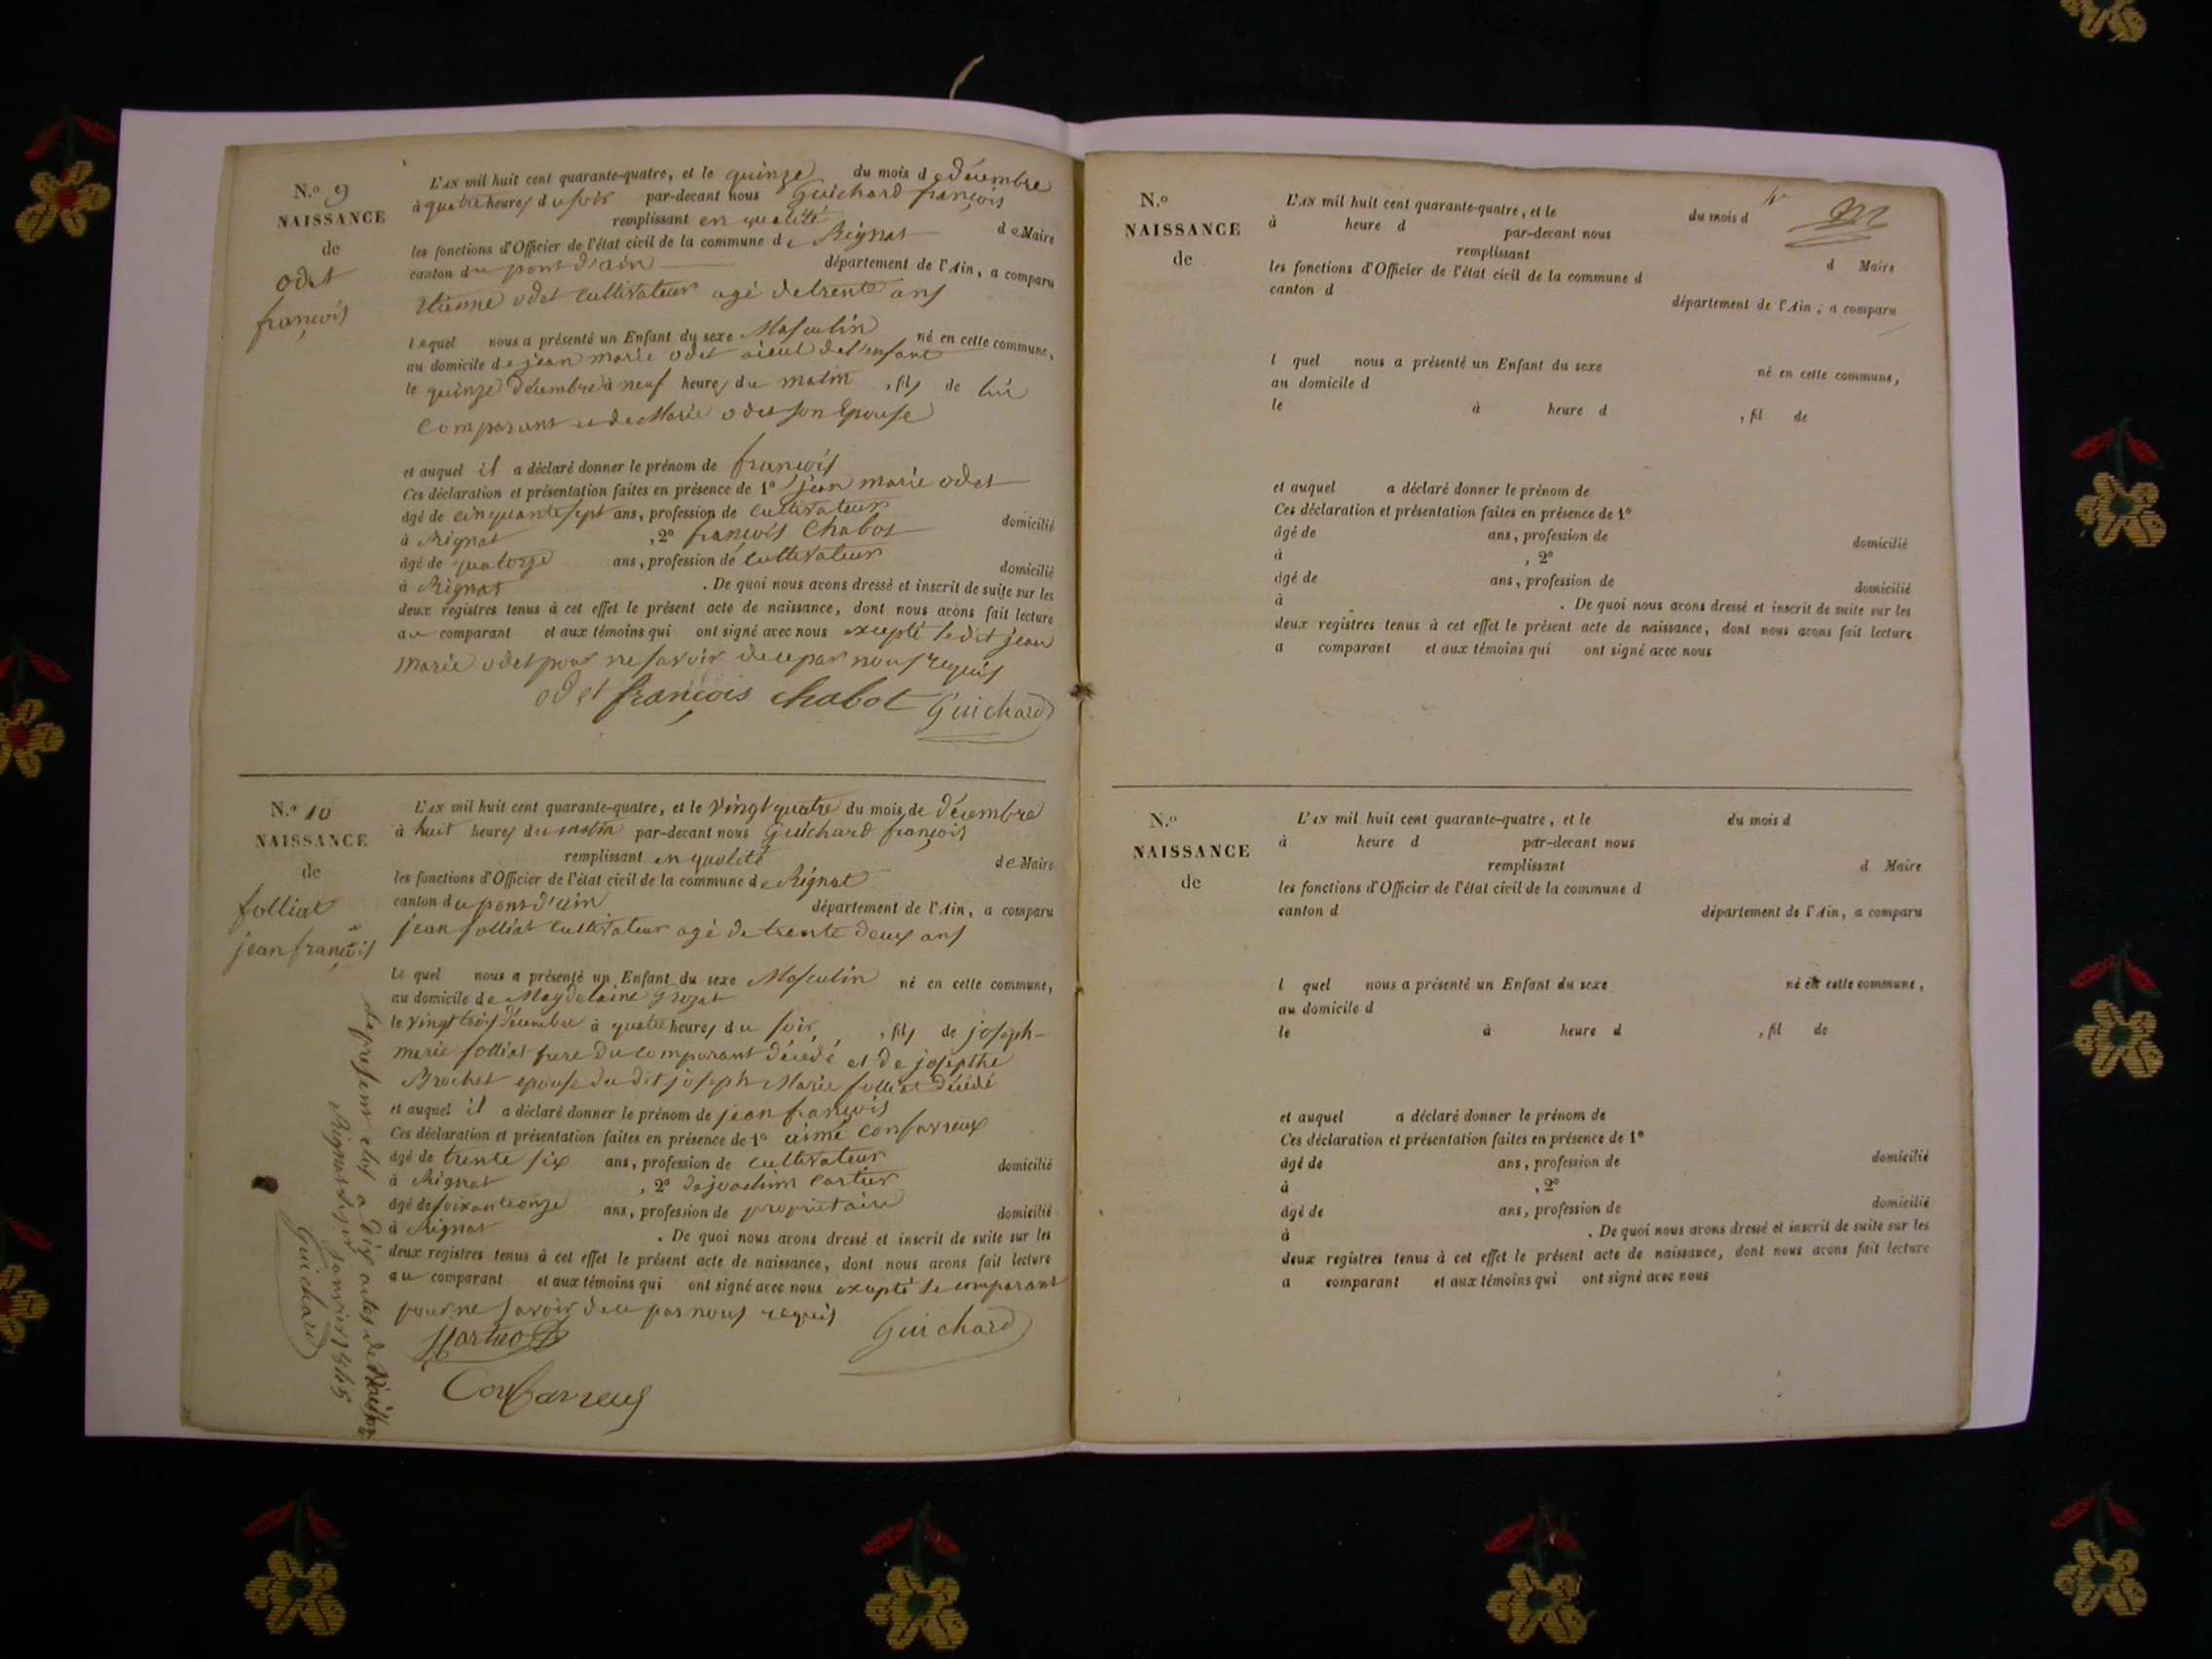 N.o 9
NAISSANCE
de
odet
françois
L'AN mil huit cent quarante-quatre, et le quinze du mois de décembre
à quatre heures du soir par-devant nous Guichard françois
remplissant en qualité de Maire
les fonctions d'Officier de l'état civil de la commune de Rignat
canton du pont d'ain département de l'Ain, a comparu
etienne odet cultivateur agé de trente ans
lequel nous a présenté un Enfant du sexe Masculin né en cette commune,
au domicile de jean marie odet aieul de l'enfant
le quinze décembre à neuf heures du matin, fils de lui
comparant et de Marie odet son Epouse
et auquel il a déclaré donner le prénom de françois
Ces déclaration et présentation faites en présence de 1o jean marie odet
âgé de cinquante sept ans, profession de cultivateur domicilié
à Rignat, 2o françois Chabot
âgé de ans, profession de cultivateur domicilié
à Rignat. De quoi nous avons dressé et inscrit de suite sur les
deux registres tenus à cet effet le présent acte de naissance, dont nous avons fait lecture
au comparant et aux témoins qui ont signé avec nous excepté le dit jean
marie odet pour ne savoir de ce par nous requis
odet françois chabot Guichard
N.o 10
NAISSANCE
de
folliat
jean françois
L'AN mil huit cent quarante-quatre, et le vingt quatre du mois de décembre
à huit heures du matin par-devant nous Guichard françois
remplissant en qualité de Maire
les fonctions d'Officier de l'état civil de la commune de Rignat
canton du pont d'ain département de l'Ain, a comparu
jean folliat cultivateur agé de trente deux ans
le quel nous a présenté un Enfant du sexe Masculin né en cette commune,
au domicile de Magdelaine
le vingt trois décembre à quatre heures du soir, fils de joseph-
marie folliat frere du comparant décédé et de josepthe
Brochet epouse du dit joseph Marie folliat décédé
et auquel il a déclaré donner le prénom de jean françois
Ces déclaration et présentation faites en présence de 1o aimé confavreux
âgé de trente six ans, profession de cultivateur domicilié
à Rignat, 2o joachim
âgé de soixante onze ans, profession de propriétaire domicilié
à Rignat. De quoi nous avons dressé et inscrit de suite sur les
deux registres tenus à cet effet le présent acte de naissance, dont nous avons fait lecture
au comparant et aux témoins qui ont signé avec nous excepté le comparant
pour ne savoir de ce par nous requis
Guichard
Confavreux
le présent clos a dix actes de Naissance
Rignat le 1er janvier 1845
Guichard
N.o
NAISSANCE
de
L'AN mil huit cent quarante-quatre, et le du mois d
à heure d par-devant nous
remplissant d Maire
les fonctions d'Officier de l'état civil de la commune d
canton d département de l'Ain, a comparu
l quel nous a présenté un Enfant du sexe né en cette commune,
au domicile d
le à heure d , fil de
et auquel a déclaré donner le prénom de
Ces déclaration et présentation faites en présence de 1o
âgé de ans, profession de domicilié
à , 2o
âgé de ans, profession de domicilié
à . De quoi nous avons dressé et inscrit de suite sur les
deux registres tenus à cet effet le présent acte de naissance, dont nous avons fait lecture
a comparant et aux témoins qui ont signé avec nous
N.o
NAISSANCE
de
L'AN mil huit cent quarante-quatre, et le du mois d
à heure d par-devant nous
remplissant d Maire
les fonctions d'Officier de l'état civil de la commune d
canton d département de l'Ain, a comparu
l quel nous a présenté un Enfant du sexe né en cette commune,
au domicile d
le à heure d , fil de
et auquel a déclaré donner le prénom de
Ces déclaration et présentation faites en présence de 1o
âgé de ans, profession de domicilié
à , 2o
âgé de ans, profession de domicilié
à . De quoi nous avons dressé et inscrit de suite sur les
deux registres tenus à cet effet le présent acte de naissance, dont nous avons fait lecture
a comparant et aux témoins qui ont signé avec nous